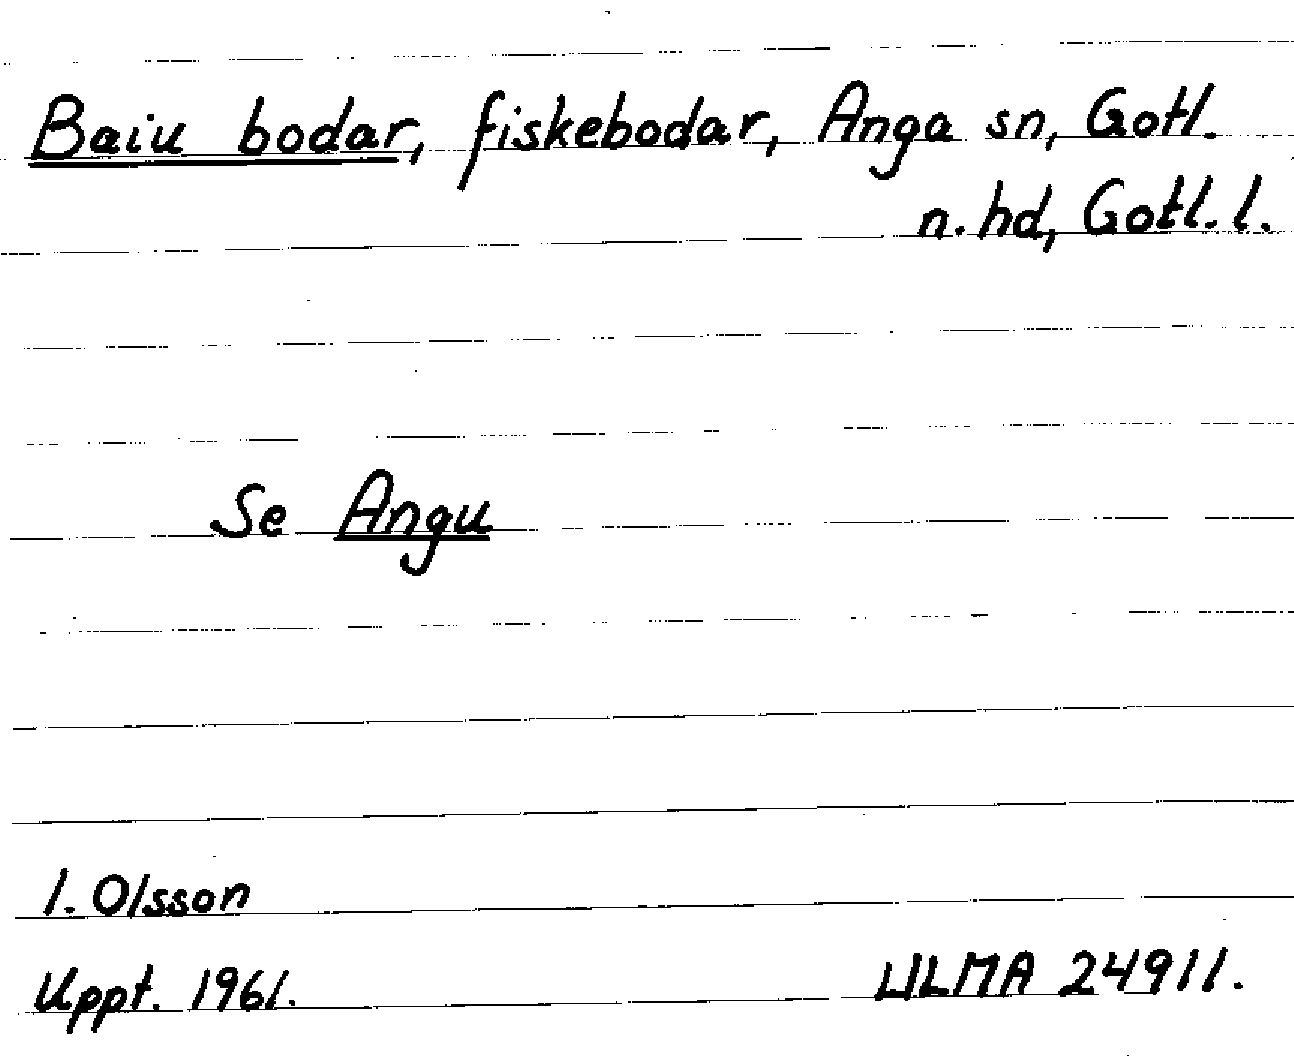 Baiu bodar, fiskebodar, Anga sn, Gotl.
n. hd, Gotl. l.
Se Angu
I. Olsson
Uppt. 1961.
ULMA 24911.